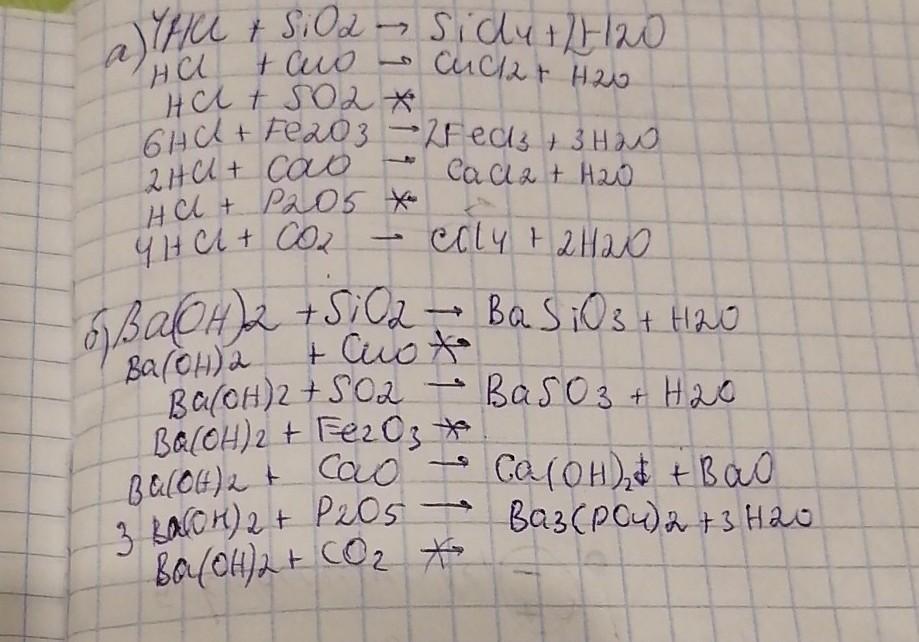 а) 4HCl + SiO2 → SiCl4 + 2H2O
HCl + CuO → CuCl2 + H2O
HCl + SO2 ↛
6HCl + Fe2O3 → 2FeCl3 + 3H2O
2HCl + CaO → CaCl2 + H2O
HCl + P2O5 ↛
4HCl + CO2 → CCl4 + 2H2O
б) Ba(OH)2 + SiO2 → BaSiO3 + H2O
Ba(OH)2 + CuO ↛
Ba(OH)2 + SO2 → BaSO3 + H2O
Ba(OH)2 + Fe2O3 ↛
Ba(OH)2 + CaO → Ca(OH)2↓ + BaO
3 Ba(OH)2 + P2O5 → Ba3(PO4)2 + 3H2O
Ba(OH)2 + CO2 ↛